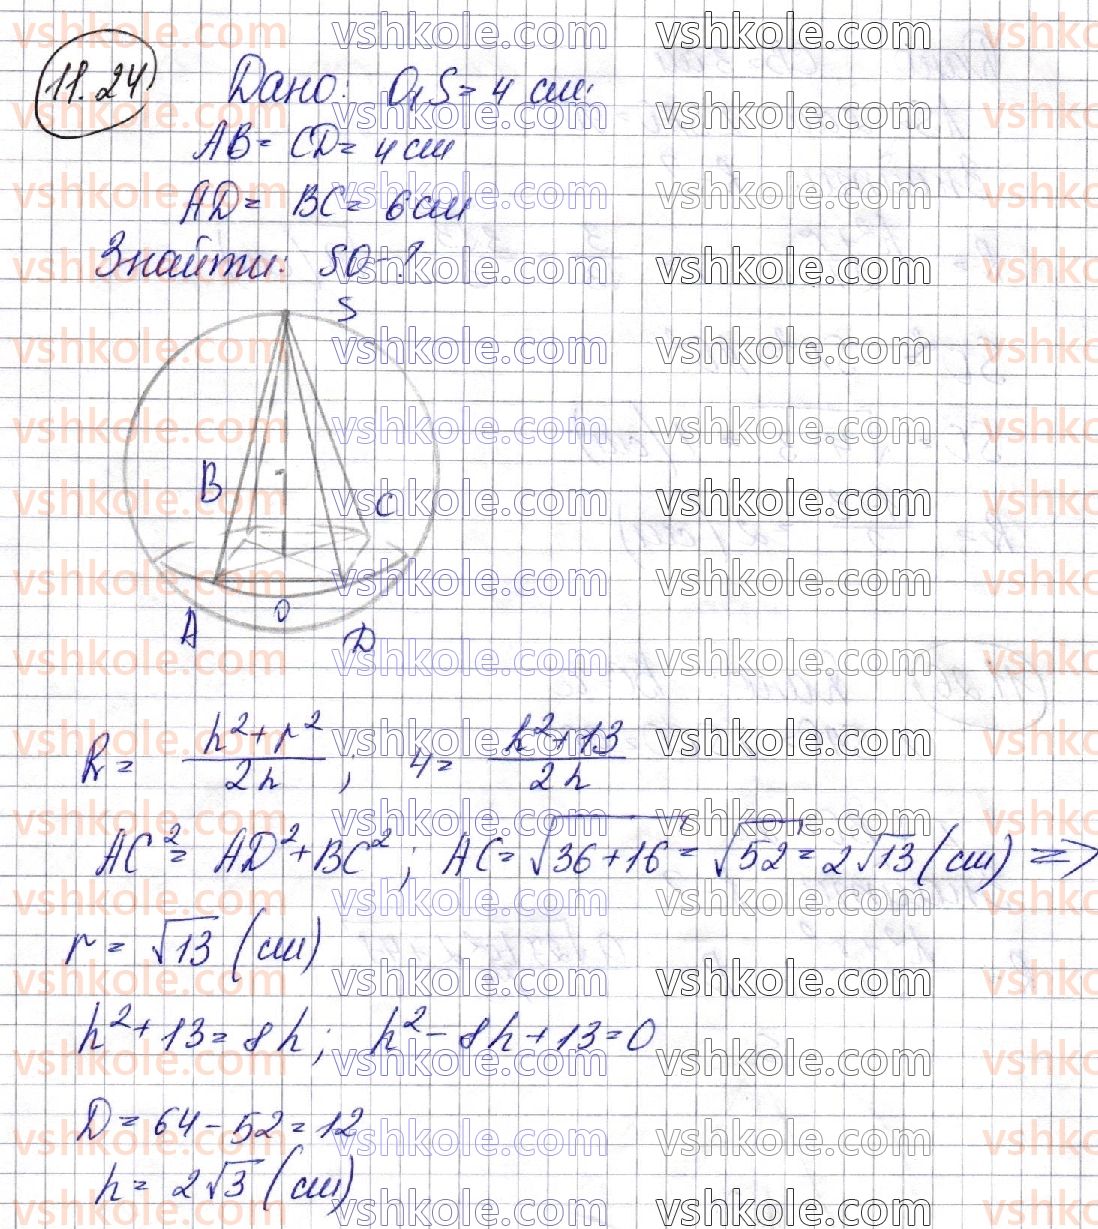 11.24 Дано: O₁S = 4 см.
AB = CD = 4 см
AD = BC = 6 см
Знайти: SO - ?
S
B
C
O
A
D
R = (h² + r²)/(2h) ; 4 = (h² + 13)/(2h)
AC² = AD² + BC² ; AC = √(36 + 16) = √52 = 2√13 (см) =>
r = √13 (см)
h² + 13 = 8h ; h² - 8h + 13 = 0
D = 64 - 52 = 12
h = 2√3 (см)
vshkole.com